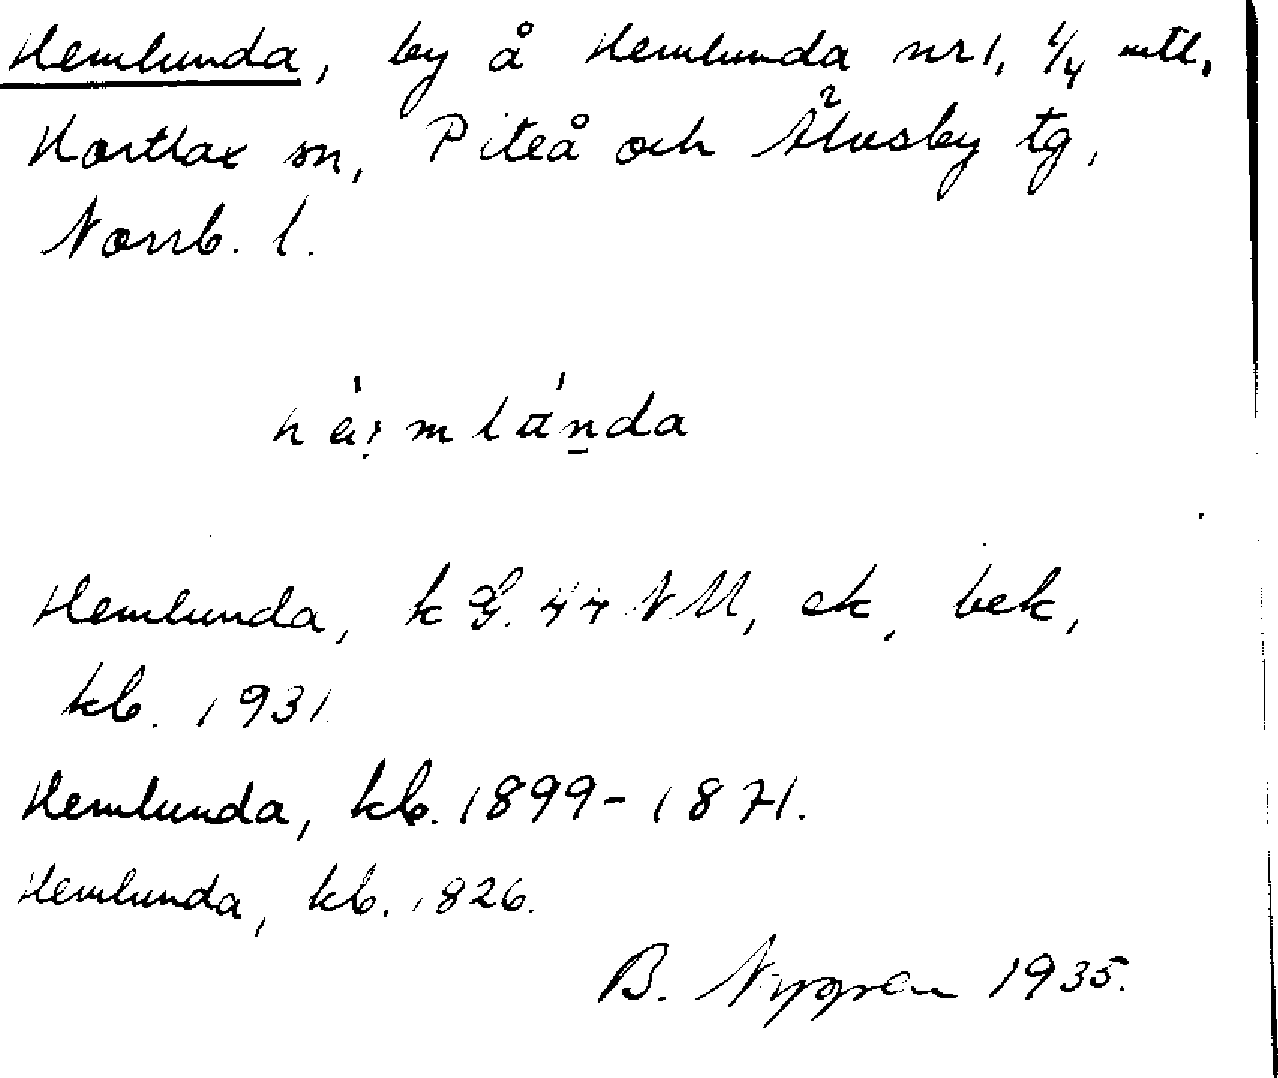 Hemlunda, by å Hemlunda nr 1, 1/4 mtl,
Hortlax sn, Piteå och Älvsby tg,
Norrb. l.
Hemlunda, k G. 44 NM, ek, bek,
kb. 1931
Hemlunda, kb. 1899-1871.
Hemlunda, kb. 1826.
B. Nygren 1935.